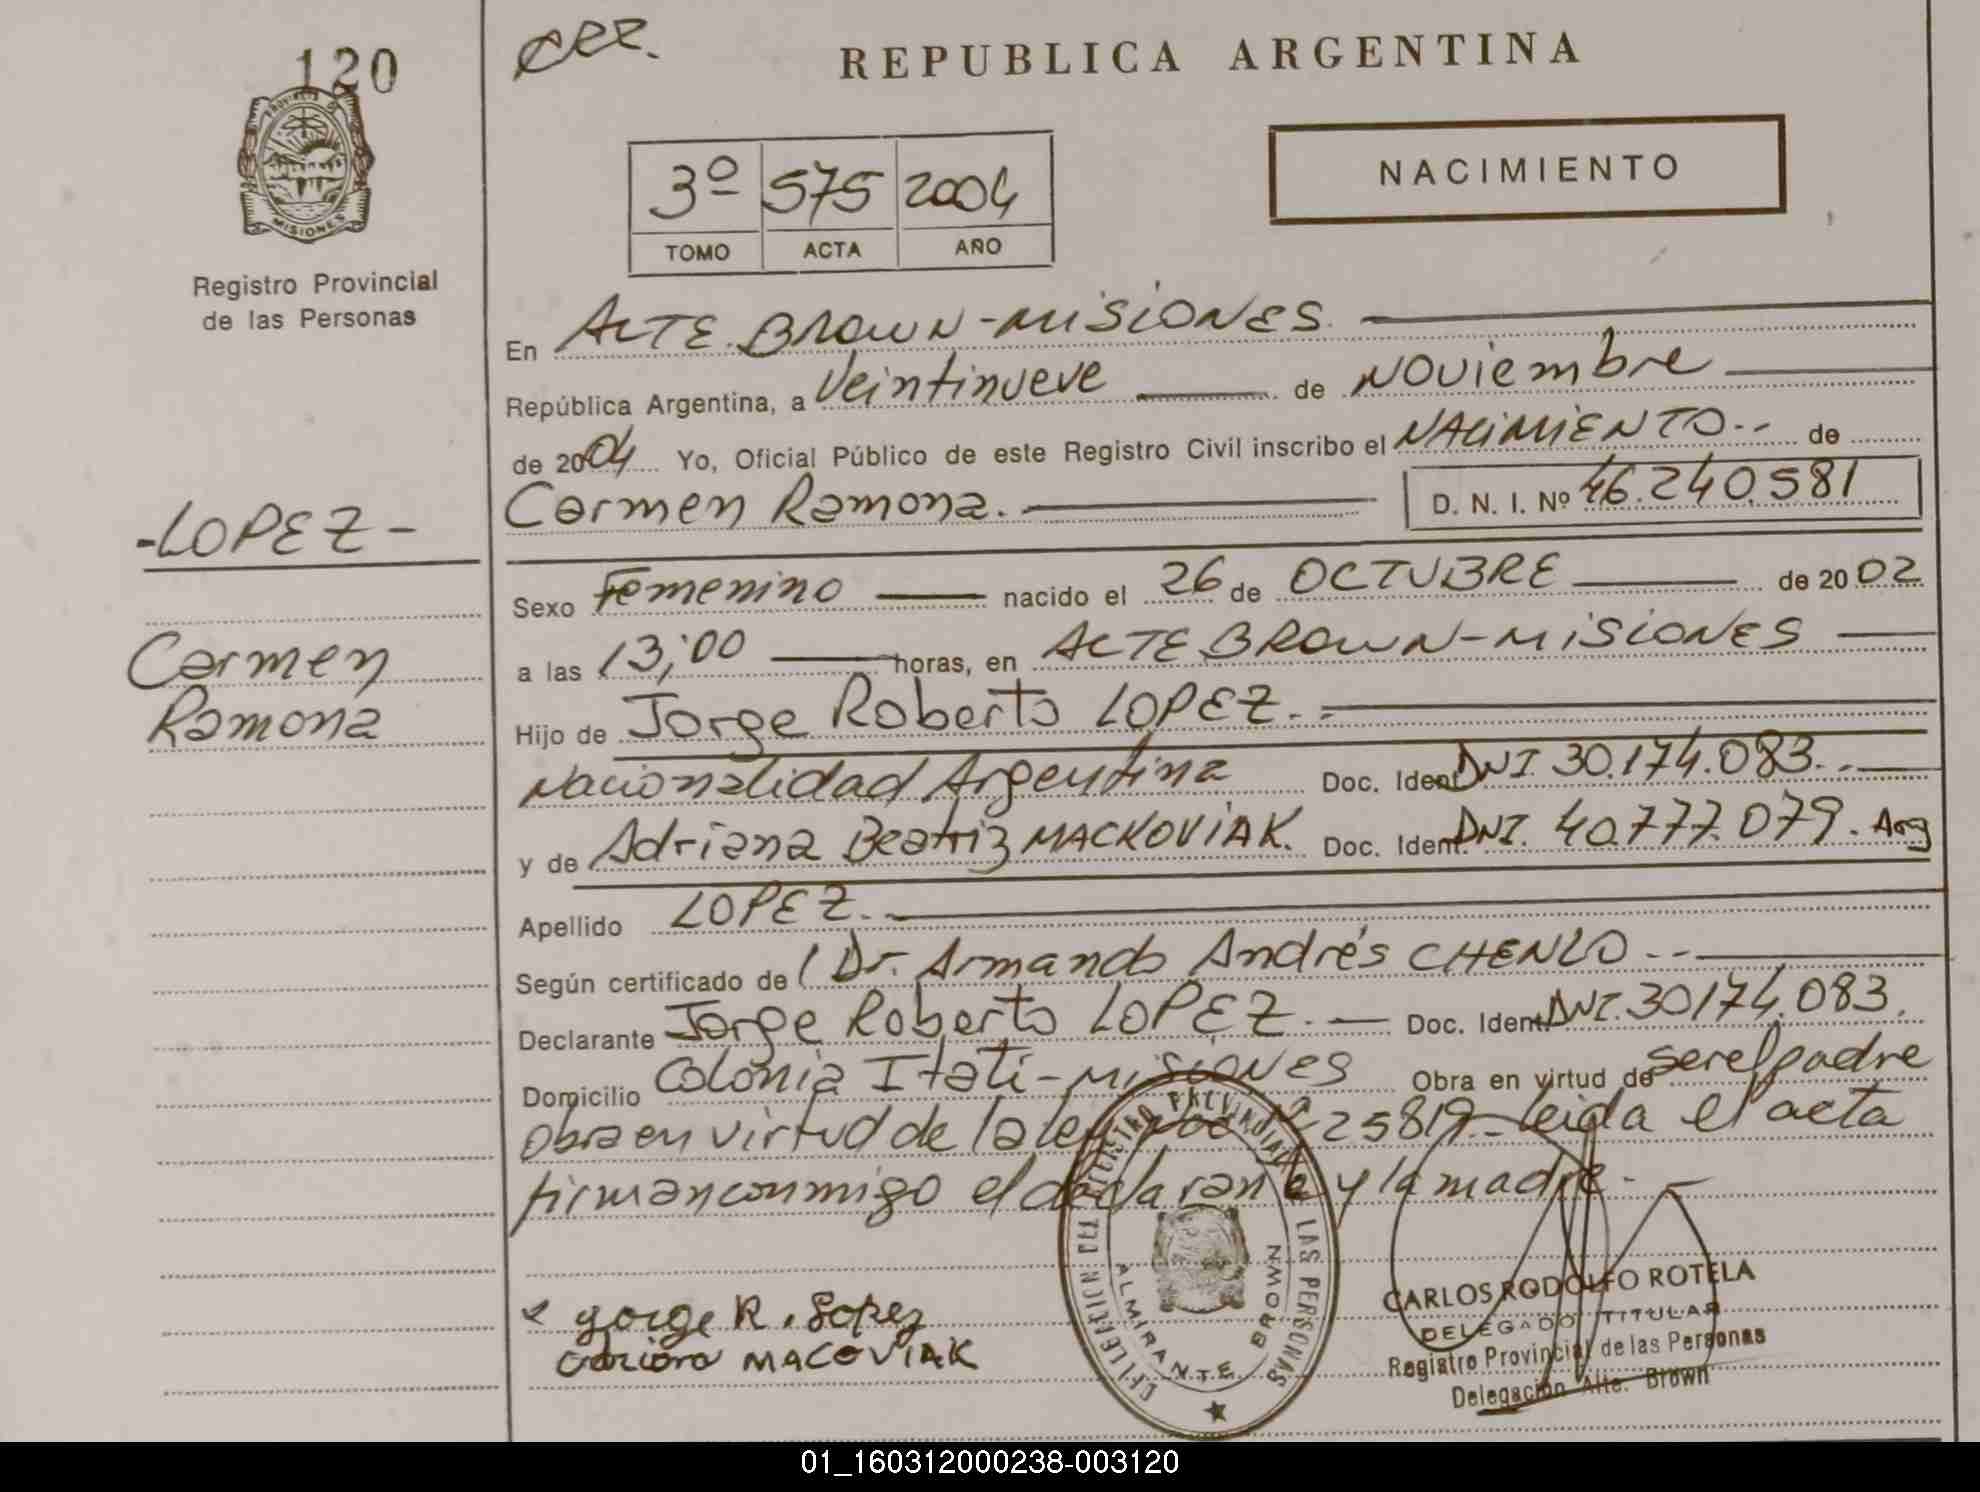 120
REPUBLICA ARGENTINA
PROVINCIA DE
MISIONES
Registro Provincial
de las Personas
3º 575 2004
TOMO ACTA AÑO
NACIMIENTO
En ALTE. BROWN-MISIONES.
República Argentina, a Veintinueve de NOViembre
de 2004 Yo, Oficial Público de este Registro Civil inscribo el NACIMIENTO.. de
Carmen Ramona. D. N. I. Nº 46.240.581
-LOPEZ-
Sexo Femenino nacido el 26 de OCTUBRE de 2002
Carmen
Ramona
a las 13;00 horas, en ALTE BROWN-MISIONES
Hijo de Jorge Roberto LOPEZ.-
Nacionalidad Argentina Doc. Ident. DNI. 30.174.083.
y de Adriana Beatriz MACKOVIAK. Doc. Ident. DNI. 40.777.079. Arg
Apellido LOPEZ.
Según certificado de Dr. Armando Andrés CHENLO.--
Declarante Jorge Roberto LOPEZ. Doc. Ident. DNI. 30174.083.
Domicilio Colonia Itatí-Misiones Obra en virtud de ser el padre
obra en virtud de la ley 25819- leida el acta
firman conmigo el declarante y la madre.-
Jorge R. Lopez
MACOVIAK
DELEGACION DEL REGISTRO PROVINCIAL DE LAS PERSONAS
ALMIRANTE BROWN
CARLOS RODOLFO ROTELA
DELEGADO TITULAR
Registro Provincial de las Personas
Delegación Alte. Brown
01_160312000238-003120